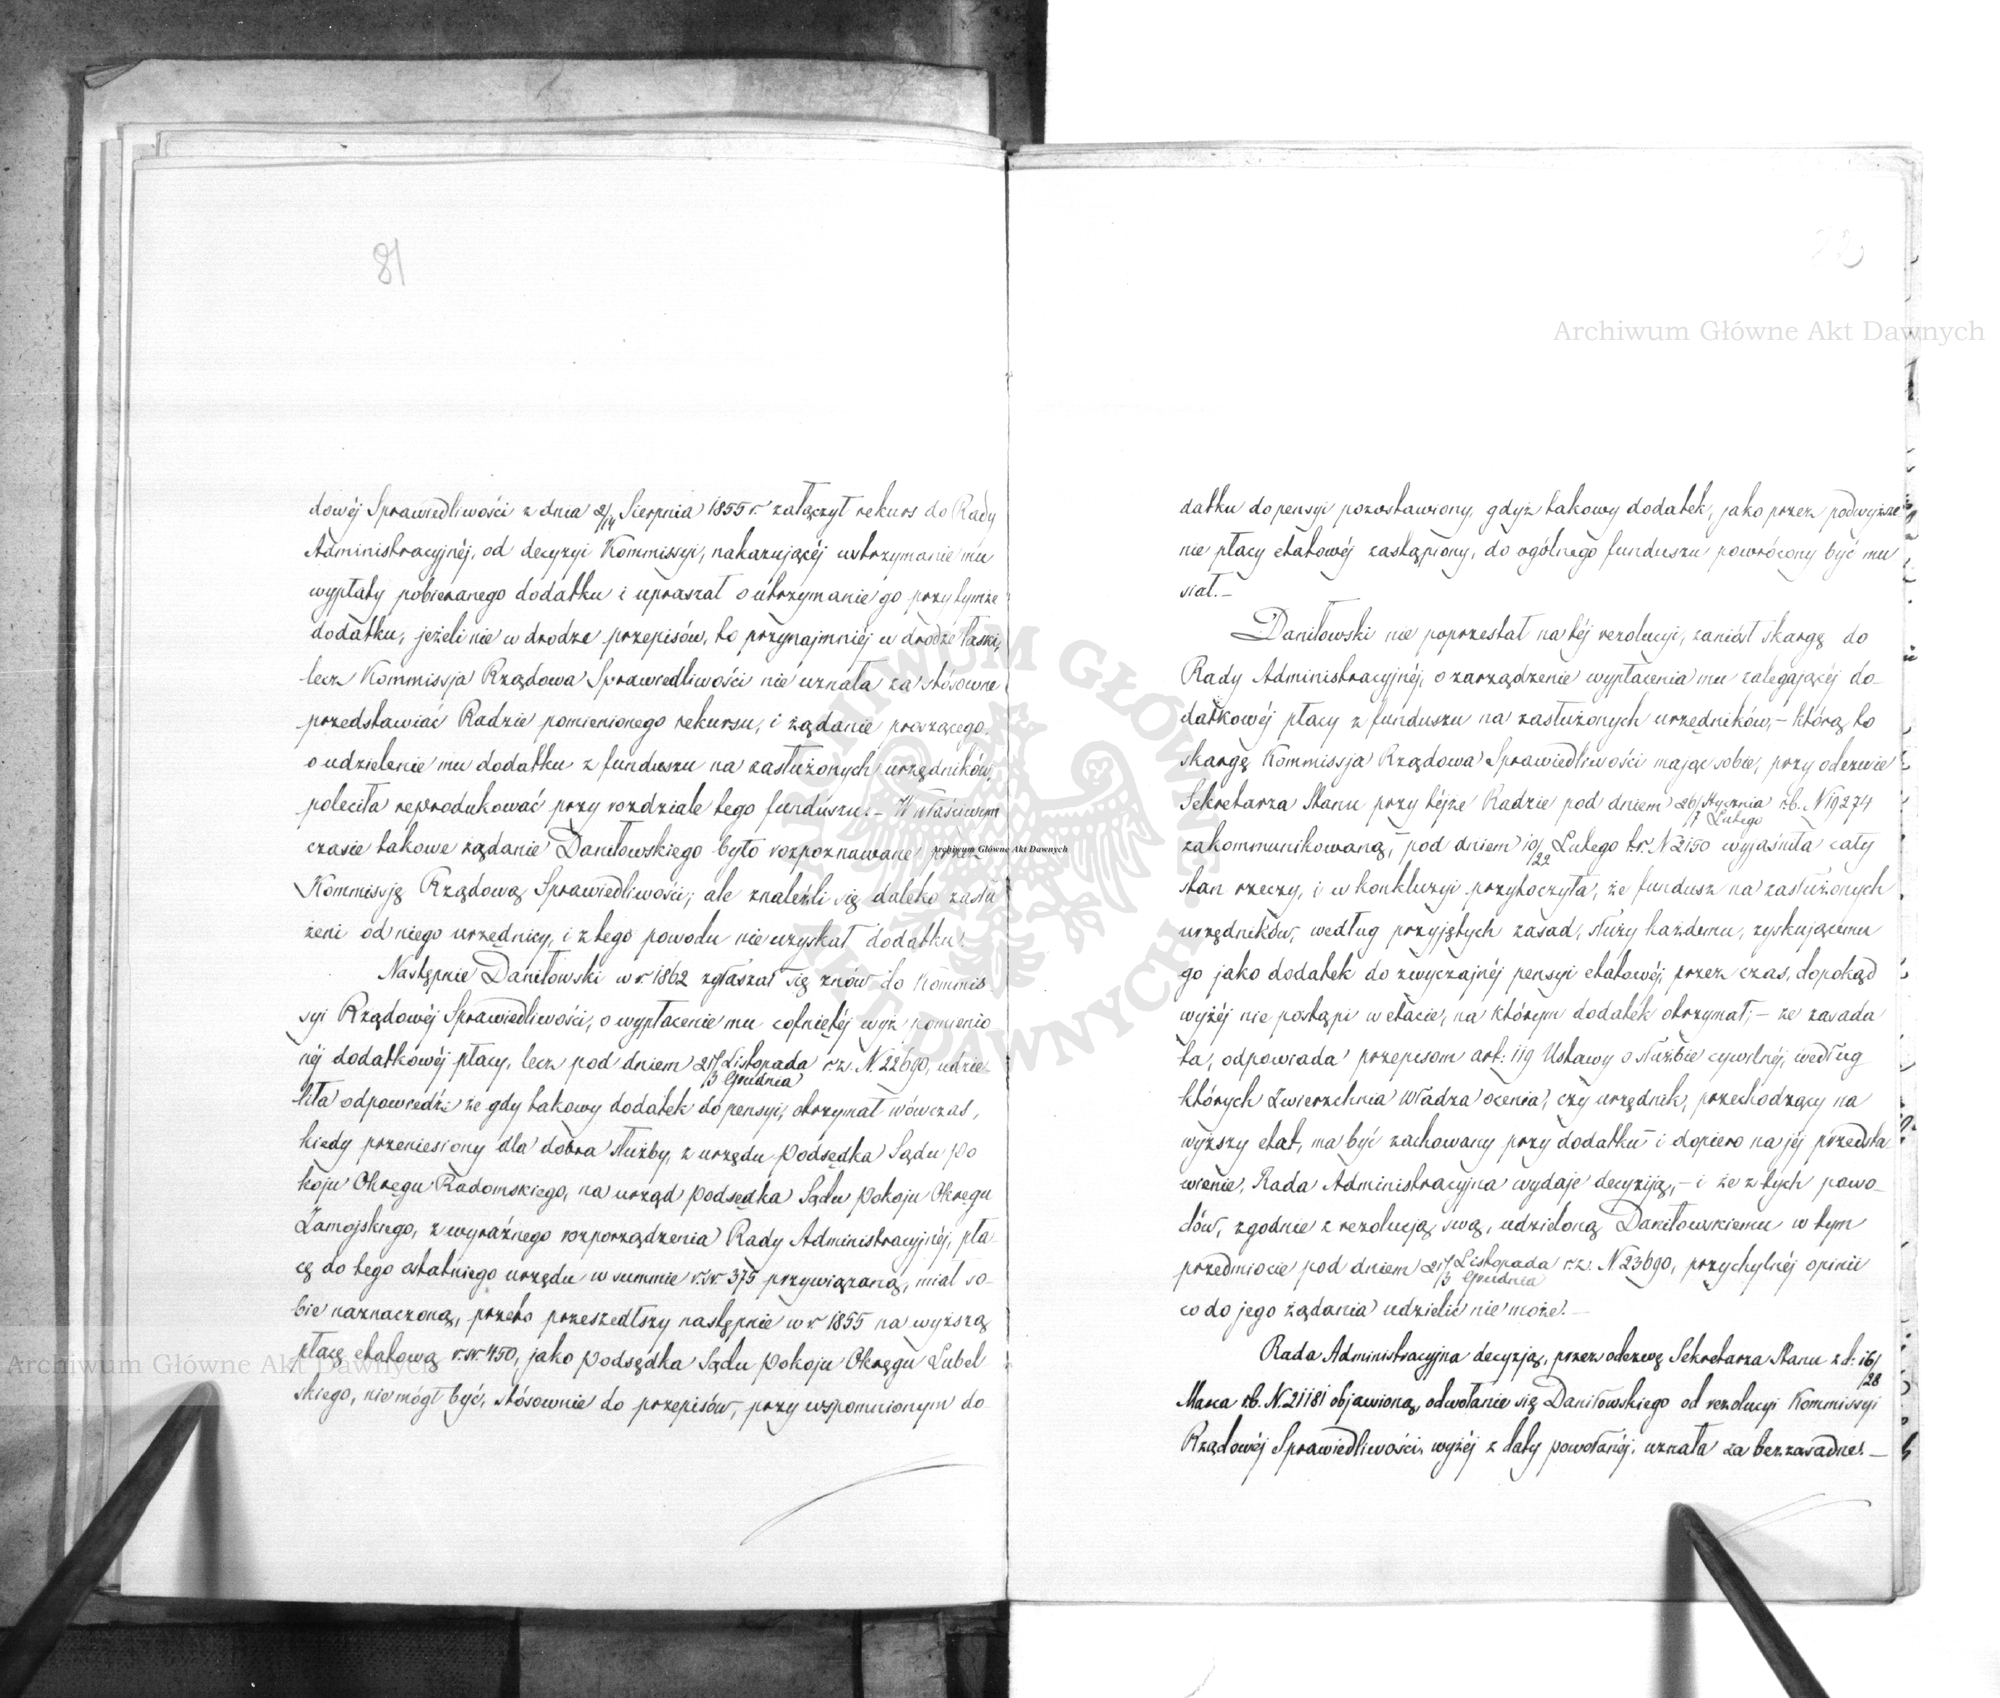 81
dowéj Sprawiedliwości z dnia 2/14 Sierpnia 1855 r. załączył rekurs do Rady
Administracyjnéj, od decyzyi Kommissyi, nakazującéj wstrzymanie mu
wypłaty pobieranego dodatku i upraszał o utrzymanie go przy tymże
dodatku, jeżeli nie w drodze przepisów, to przynajmniéj w drodze łaski,
lecz Kommissja Rządowa Sprawiedliwości nie uznała za stósowne
przedstawiać Radzie pomienionego rekursu, i żądanie proszącego,
o udzielenie mu dodatku z funduszu na zasłużonych urzędników,
poleciła reprodukować przy rozdziale tego funduszu. – W właściwym
czasie takowe żądanie Daniłowskiego było rozpoznawane przez
Kommissję Rządową Sprawiedliwości; ale znaleźli się daleko zasłu
żeni od niego urzędnicy, i z tego powodu nie uzyskał dodatku.
Następnie Daniłowski w r. 1862 zgłaszał się znów do Kommis
syi Rządowéj Sprawiedliwości, o wypłacenie mu cofniętéj wyż pomienio
néj dodatkowéj płacy, lecz pod dniem 21/3 Listopada/Grudnia r.z. N. 22690, udzie
liła odpowiedź że gdy takowy dodatek do pensyi, otrzymał wówczas,
kiedy przeniesiony dla dobra służby, z urzędu Podsędka Sądu Po
koju Okręgu Radomskiego, na urząd Podsędka Sądu Pokoju Okręgu
Zamojskiego, z wyraźnego rozporządzenia Rady Administracyjnéj, pła
cę do tego ostatniego urzędu w summie r.sr. 375 przywiązaną, miał so-
bie naznaczoną, przeto przeszedłszy następnie w r. 1855 na wyższą
płacę etatową r.sr. 450, jako Podsędka Sądu Pokoju Okręgu Lubel
skiego, nie mógł być, stósownie do przepisów, przy wspomnionym do-
datku do pensyi pozostawiony, gdyż takowy dodatek, jako przez podwyższe
nie płacy etatowéj zastąpiony, do ogólnego funduszu powrócony być mu
siał. –
Daniłowski nie poprzestał na téj rezolucyi, zaniósł skargę do
Rady Administracyjnéj, o zarządzenie wypłacenia mu zalegającéj do-
datkowéj płacy z funduszu na zasłużonych urzędników, – którą to
skargę Kommissja Rządowa Sprawiedliwości mając sobie, przy odezwie
Sekretarza Stanu przy téjże Radzie pod dniem 26/7 Stycznia/Lutego r.b. N 19274
zakommunikowaną, pod dniem 10/22 Lutego t.r. N 2150 wyjaśniła cały
stan rzeczy, i w konkluzyi przytoczyła, że fundusz na zasłużonych
urzędników, według przyjętych zasad, służy każdemu, zyskującemu
go jako dodatek do zwyczajnéj pensyi etatowéj, przez czas, dopokąd
wyżéj nie postąpi w etacie, na którym dodatek otrzymał; – że zasada
ta, odpowiada przepisom art: 119 Ustawy o służbie cywilnéj, według
których Zwierzchnia Władza ocenia, czy urzędnik, przechodzący na
wyższy etat, ma być zachowany przy dodatku – i dopiero na jéj przedsta
wienie, Rada Administracyjna wydaje decyzyją, – i że z tych powo-
dów, zgodnie z rezolucją swą, udzieloną Daniłowskiemu w tym
przedmiocie pod dniem 21/3 Listopada/Grudnia r.z. N 23690, przychylnéj opinii
co do jego żądania udzielić nie może. –
Rada Administracyjna decyzją, przez odezwę Sekretarza Stanu z d: 16/28
Marca r.b. N. 21181 objawioną, odwołanie się Daniłowskiego od rezolucyi Kommissyi
Rządowéj Sprawiedliwości, wyżéj z daty powołanéj, uznała za bezzasadne. –
Archiwum Główne Akt Dawnych
Archiwum Główne Akt Dawnych
Archiwum Główne Akt Dawnych
ARCHIWUM GŁÓWNE AKT DAWNYCH